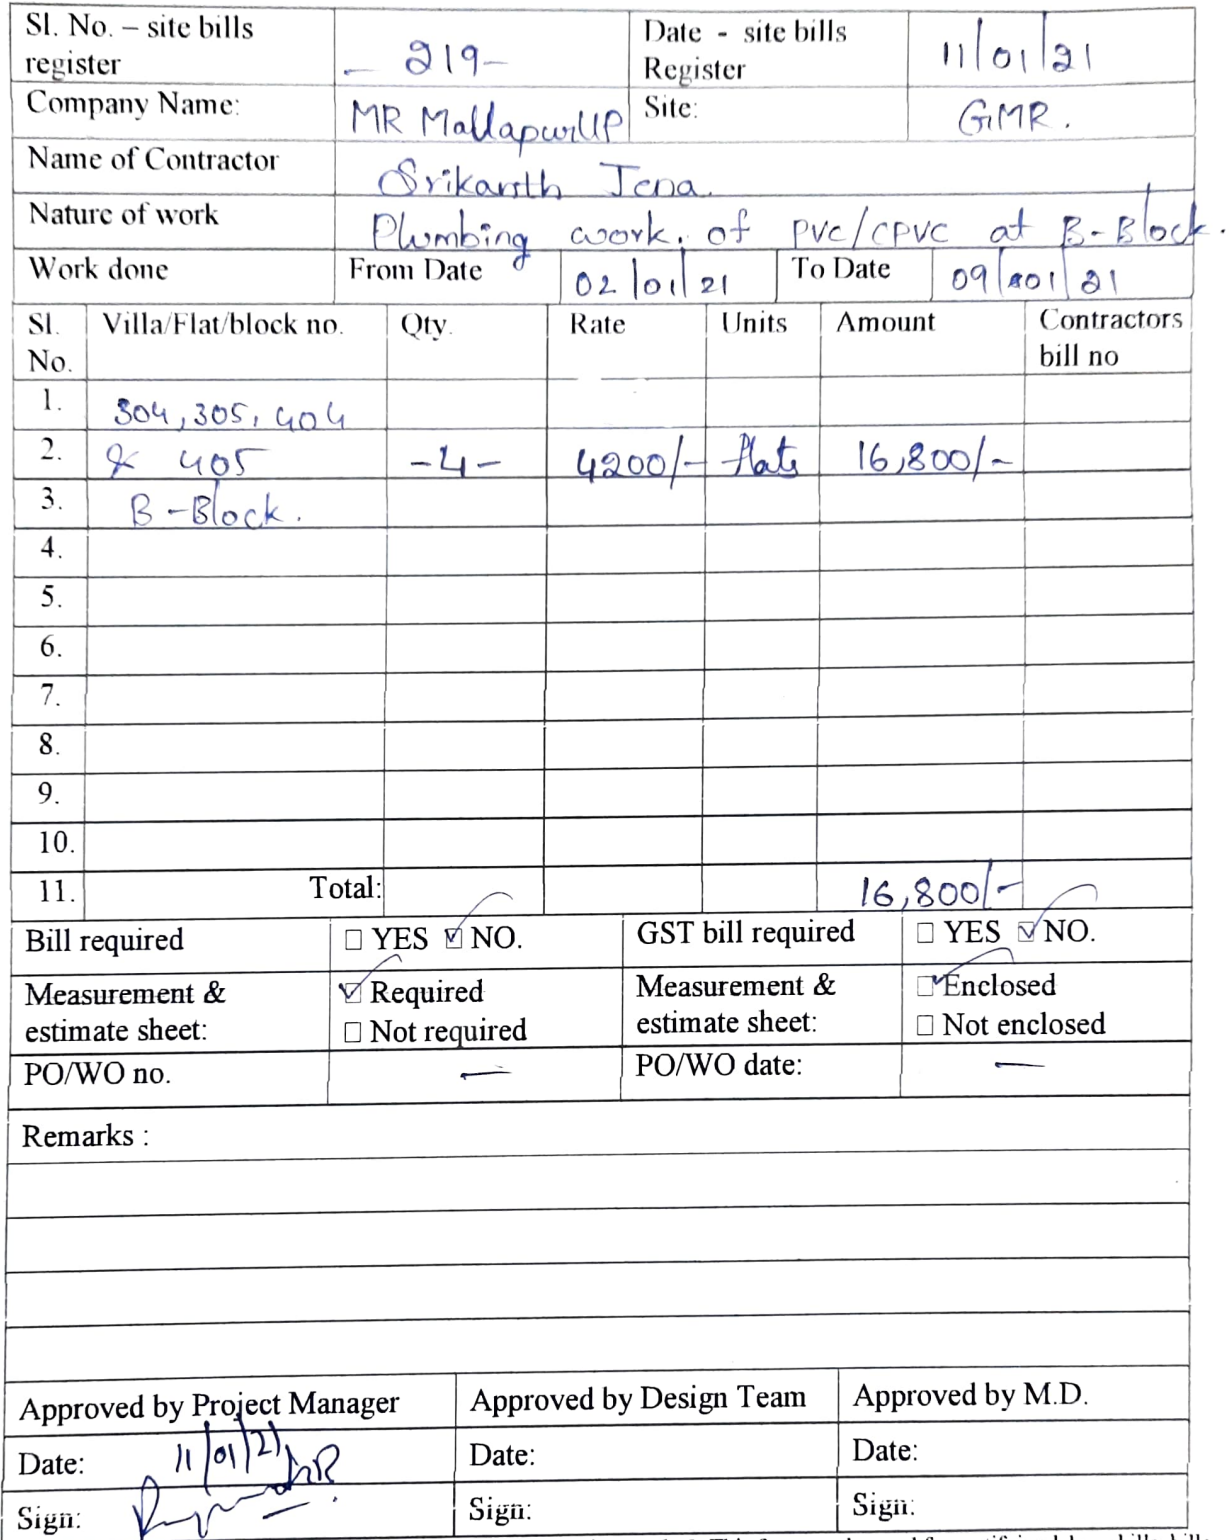 Sl. No. – site bills register - 219- Date - site bills Register 11/01/21
Company Name: MR Mallapur LLP Site: GMR.
Name of Contractor Srikanth Jena.
Nature of work Plumbing work. of PVC/CPVC at B-Block.
Work done From Date 02/01/21 To Date 09/01/21
Sl. No. Villa/Flat/block no. Qty. Rate Units Amount Contractors bill no
1. 304, 305, 404
2. & 405 -4- 4200/- flats 16,800/-
3. B-Block.
4.
5.
6.
7.
8.
9.
10.
11. Total: 16,800/-
Bill required ☐ YES ☑ NO. GST bill required ☐ YES ☑ NO.
Measurement & estimate sheet: ☑ Required Measurement & estimate sheet: ☑ Enclosed
☐ Not required ☐ Not enclosed
PO/WO no. — PO/WO date: —
Remarks :
Approved by Project Manager Approved by Design Team Approved by M.D.
Date: 11/01/21 Date: Date:
Sign: Sign: Sign: